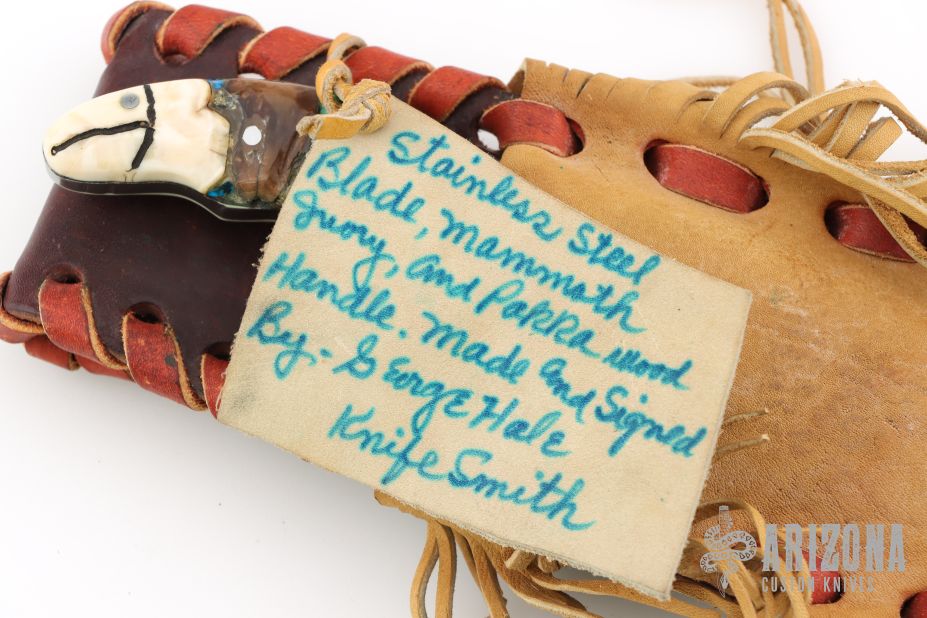 Stainless Steel
Blade, Mammoth
Ivory, and Pakka wood
Handle. Made and Signed
By:- George Hale
Knife Smith
ARIZONA
CUSTOM KNIVES